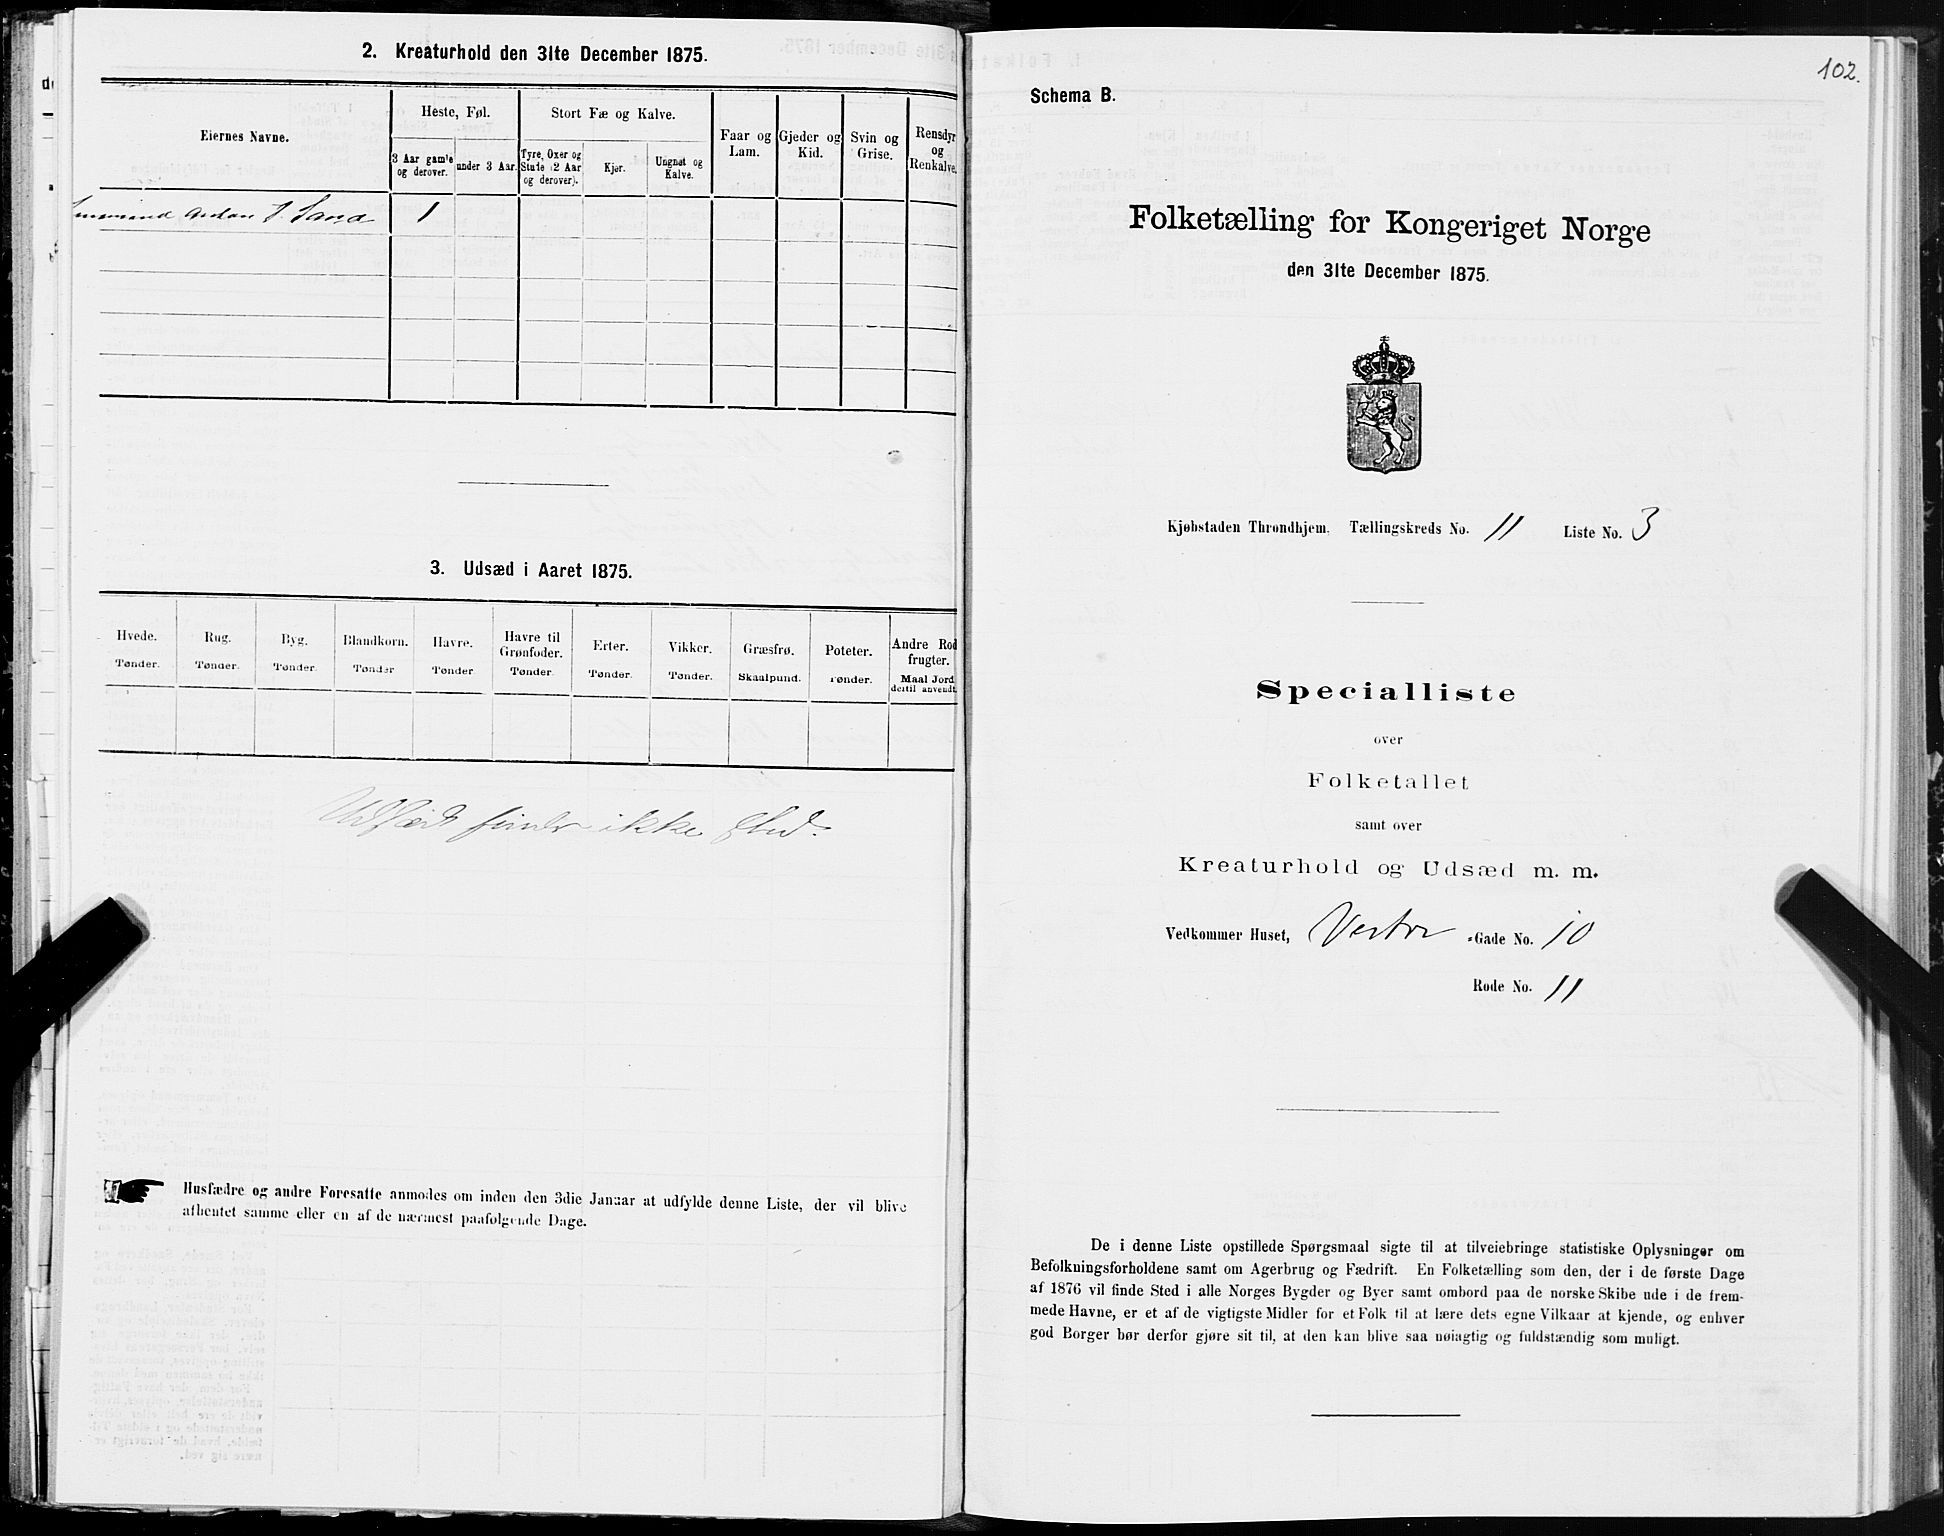 2. Kreaturhold den 31te December 1875.
Eiernes Navne.
Heste, Føl.
3 Aar gamle og derover.
under 3 Aar.
Stort Fæ og Kalve.
Tyre, Oxer og Stude (2 Aar og derover).
Kjør.
Ungnøt og Kalve.
Faar og Lam.
Gjeder og Kid.
Svin og Grise.
Rensdyr og Renkalve.
Anton J. Sand 1
3. Udsæd i Aaret 1875.
Hvede. Tønder.
Rug. Tønder.
Byg. Tønder.
Blandkorn. Tønder
Havre. Tønder
Havre til Grønfoder. Tønder
Erter. Tønder.
Vikker. Tønder.
Græsfrø. Skaalpund.
Poteter. Tønder.
Andre Rodfrugter. Maal Jord dertil anvendt.
Udsæd finder ikke Sted.
Husfædre og andre Foresatte anmodes om inden den 3die Januar at udfylde denne Liste, der vil blive
afhentet samme eller en af de nærmest paafølgende Dage.
102.
Schema B.
Folketælling for Kongeriget Norge
den 31te December 1875.
Kjøbstaden Throndhjem. Tællingskreds No. 11 Liste No. 3
Specialliste
over
Folketallet
samt over
Kreaturhold og Udsæd m. m.
Vedkommer Huset, Vestre -Gade No. 10
Rode No. 11
De i denne Liste opstillede Spørgsmaal sigte til at tilveiebringe statistiske Oplysninger om
Befolkningsforholdene samt om Agerbrug og Fædrift. En Folketælling som den, der i de første Dage
af 1876 vil finde Sted i alle Norges Bygder og Byer samt ombord paa de norske Skibe ude i de frem-
mede Havne, er et af de vigtigste Midler for et Folk til at lære dets egne Vilkaar at kjende, og enhver
god Borger bør derfor gjøre sit til, at den kan blive saa nøiagtig og fuldstændig som muligt.